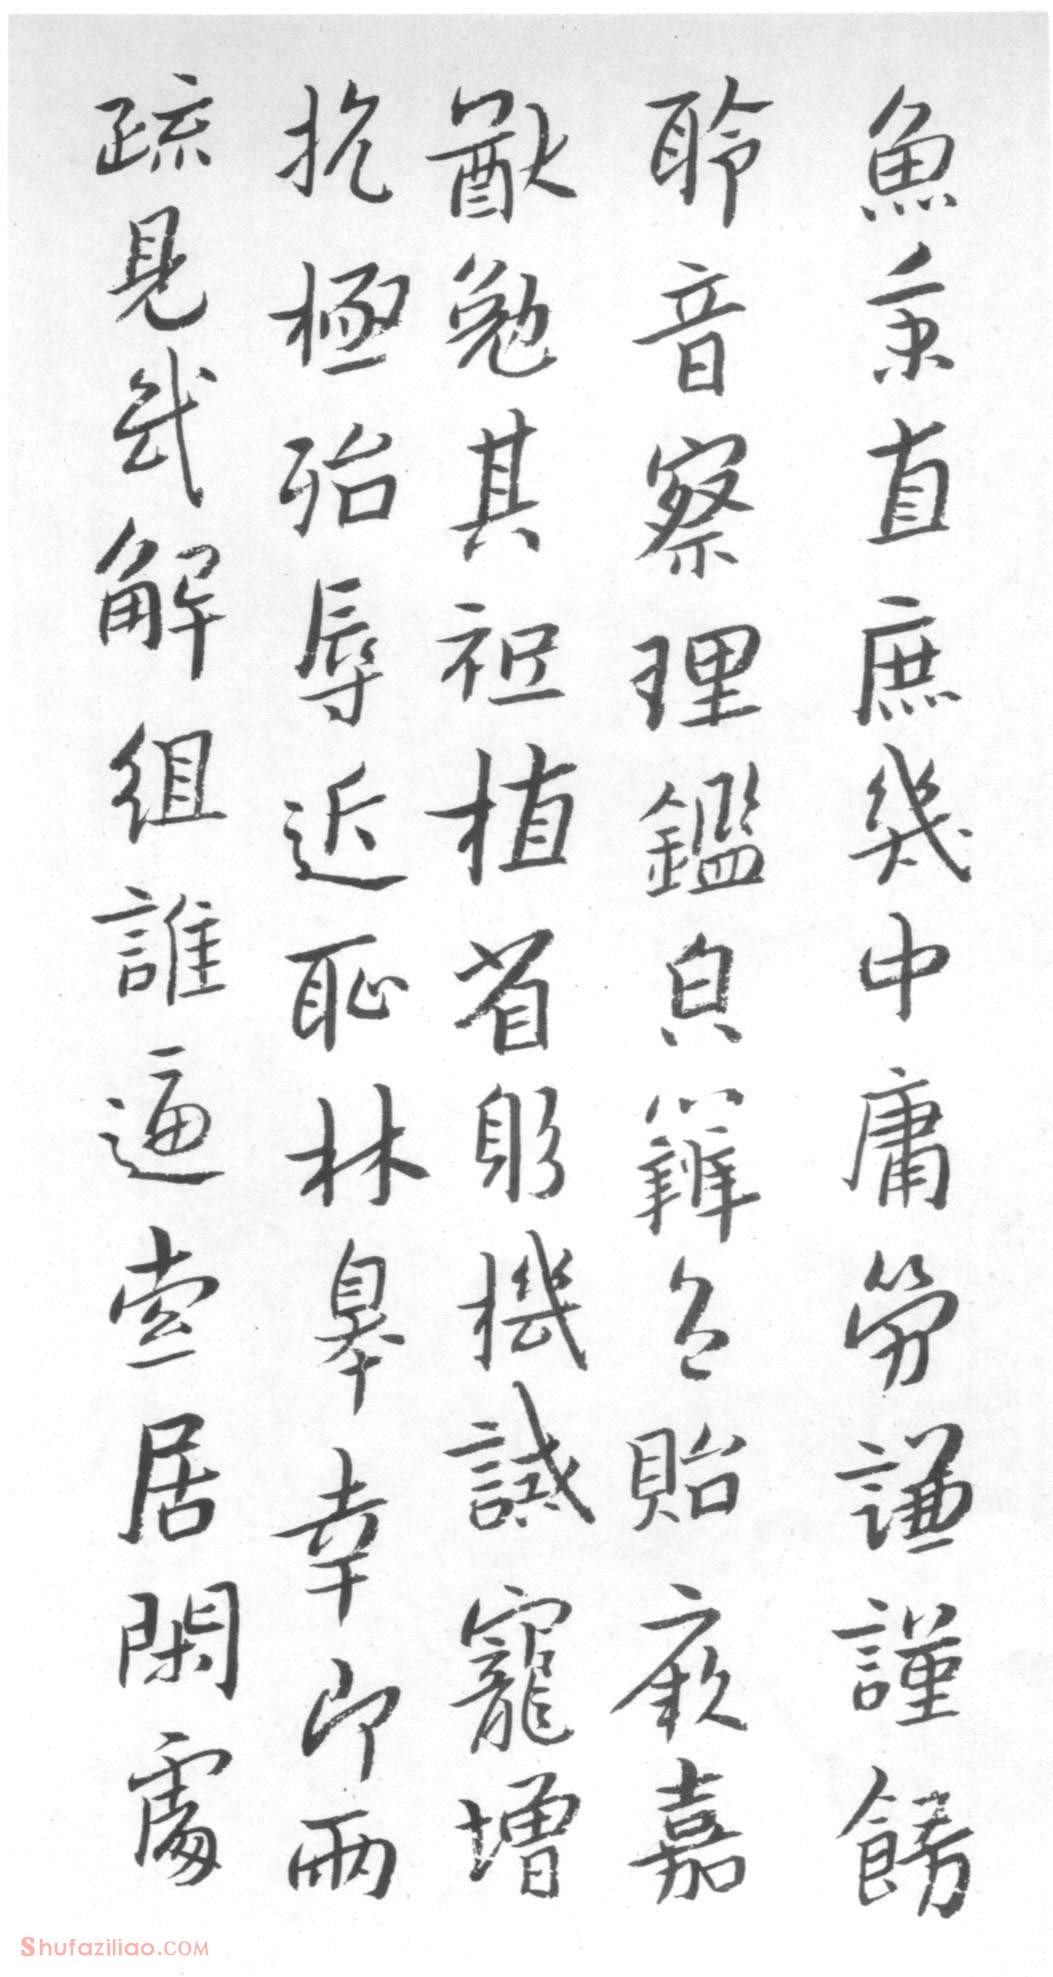 魚秉直庶幾中庸勞謙謹飭
聆音察理鑑皃辯色貽厥嘉
猷勉其祗植省躬機誡寵增
抗極殆辱近恥林皋幸即兩
疏見幾解組誰逼索居閑處
Shufaziliao.COM